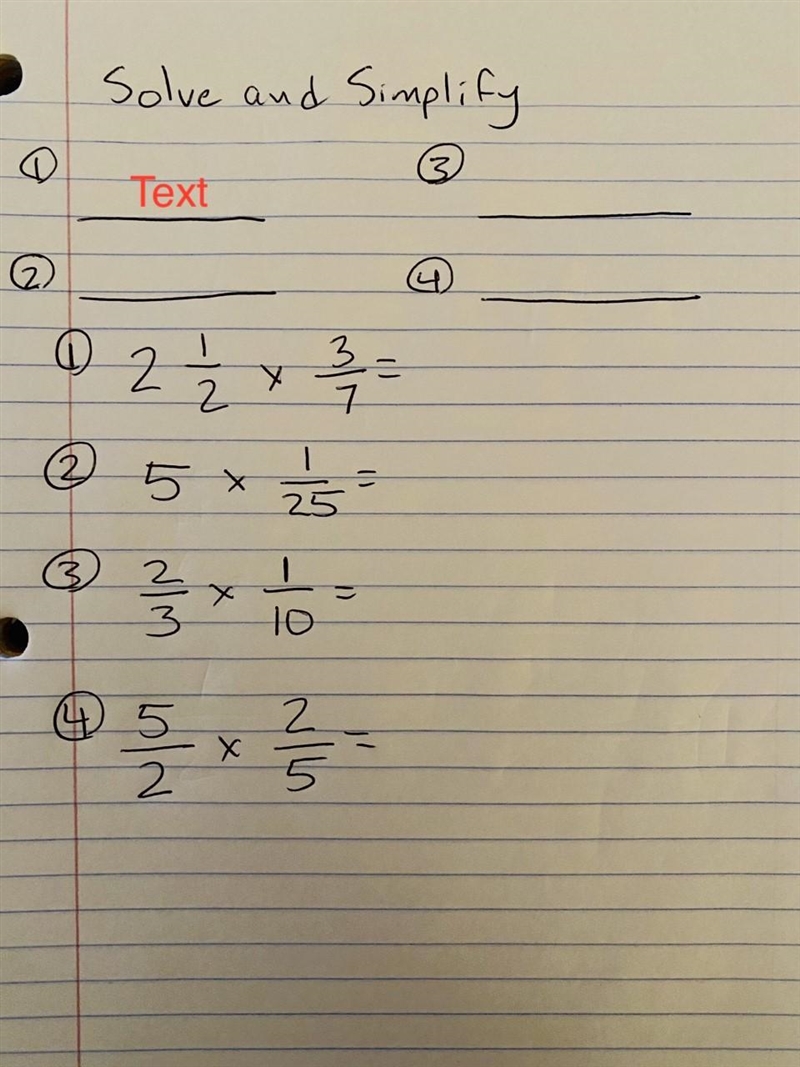 Solve and Simplify
① Text ③
② ④
① 2 1/2 x 3/7 =
② 5 x 1/25 =
③ 2/3 x 1/10 =
④ 5/2 x 2/5 =